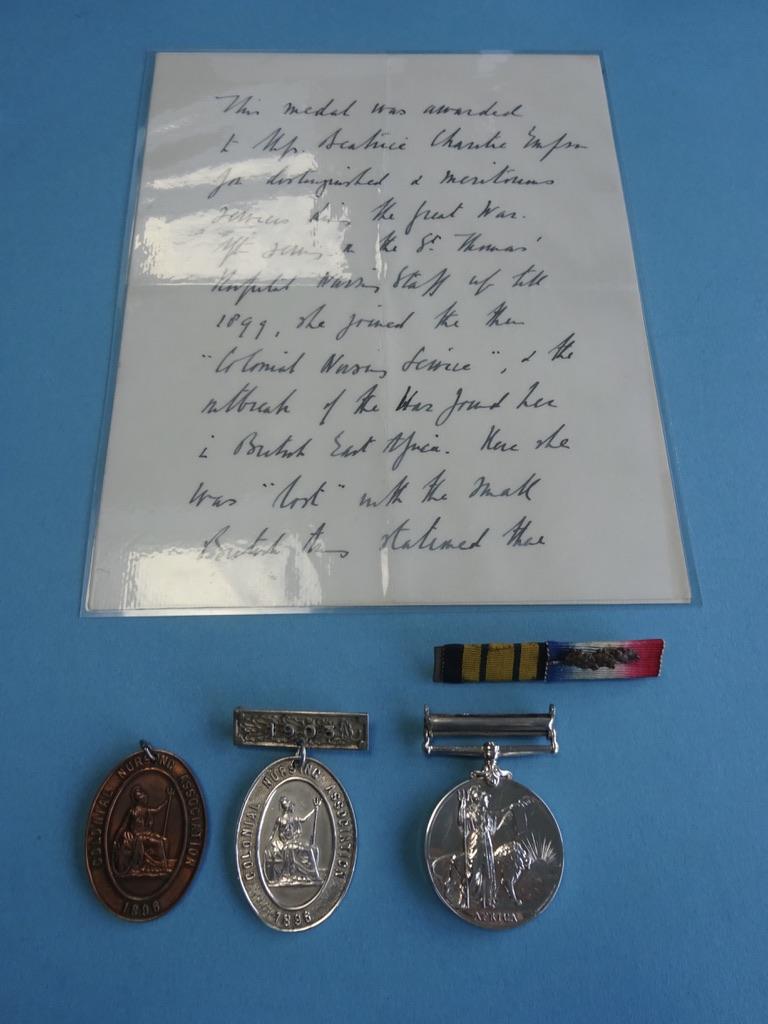 This medal was awarded
to Mrs. Beatrice Charitie Empson
for distinguished & meritorious
services during the Great War.
After serving on the St. Thomas'
Hospital Nursing Staff up till
1899, she joined the then
"Colonial Nursing Service", & the
outbreak of the War found her
in British East Africa. Here she
was "lost" with the small
British stationed there
1903
COLONIAL NURSING ASSOCIATION
1896
COLONIAL NURSING ASSOCIATION
1896
AFRICA